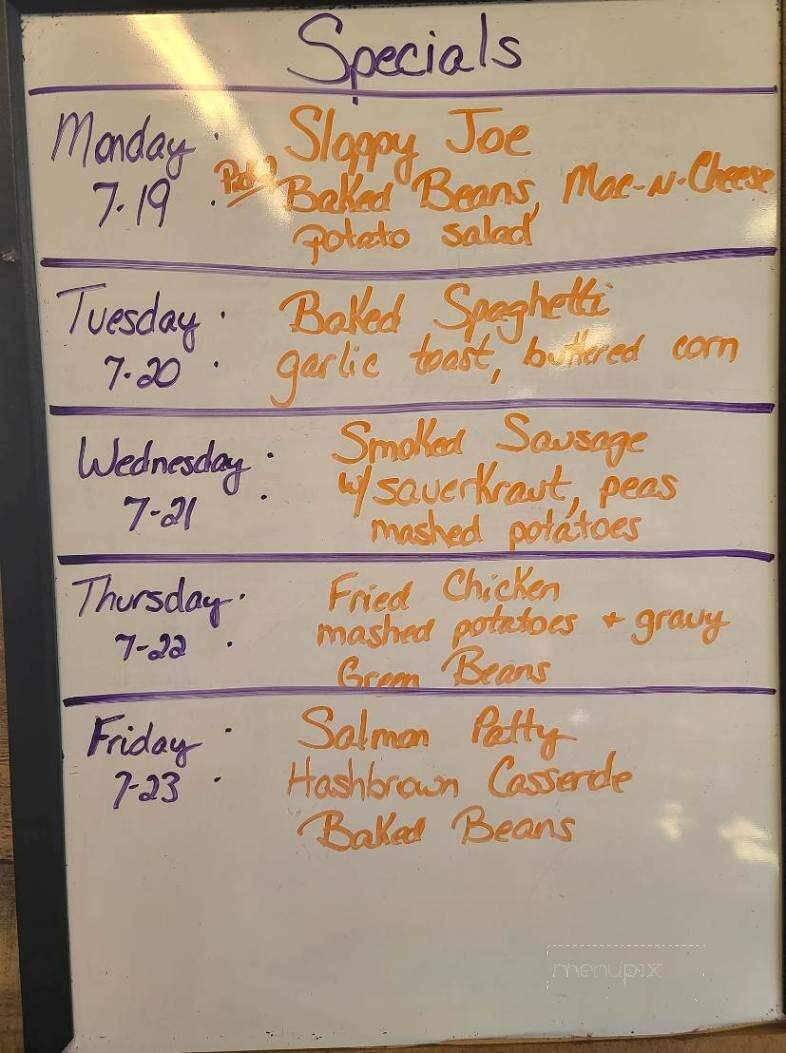 Specials
Monday : Sloppy Joe
7-19 . Pick 2 Baked Beans, Mac-N-Cheese
potato salad
Tuesday : Baked Spaghetti
7-20 garlic toast, buttered corn
Wednesday : Smoked Sausage
7-21 w/ sauerkraut, peas
mashed potatoes
Thursday : Fried Chicken
7-22 mashed potatoes + gravy
Green Beans
Friday : Salmon Patty
7-23 Hashbrown Casserole
Baked Beans
menupix